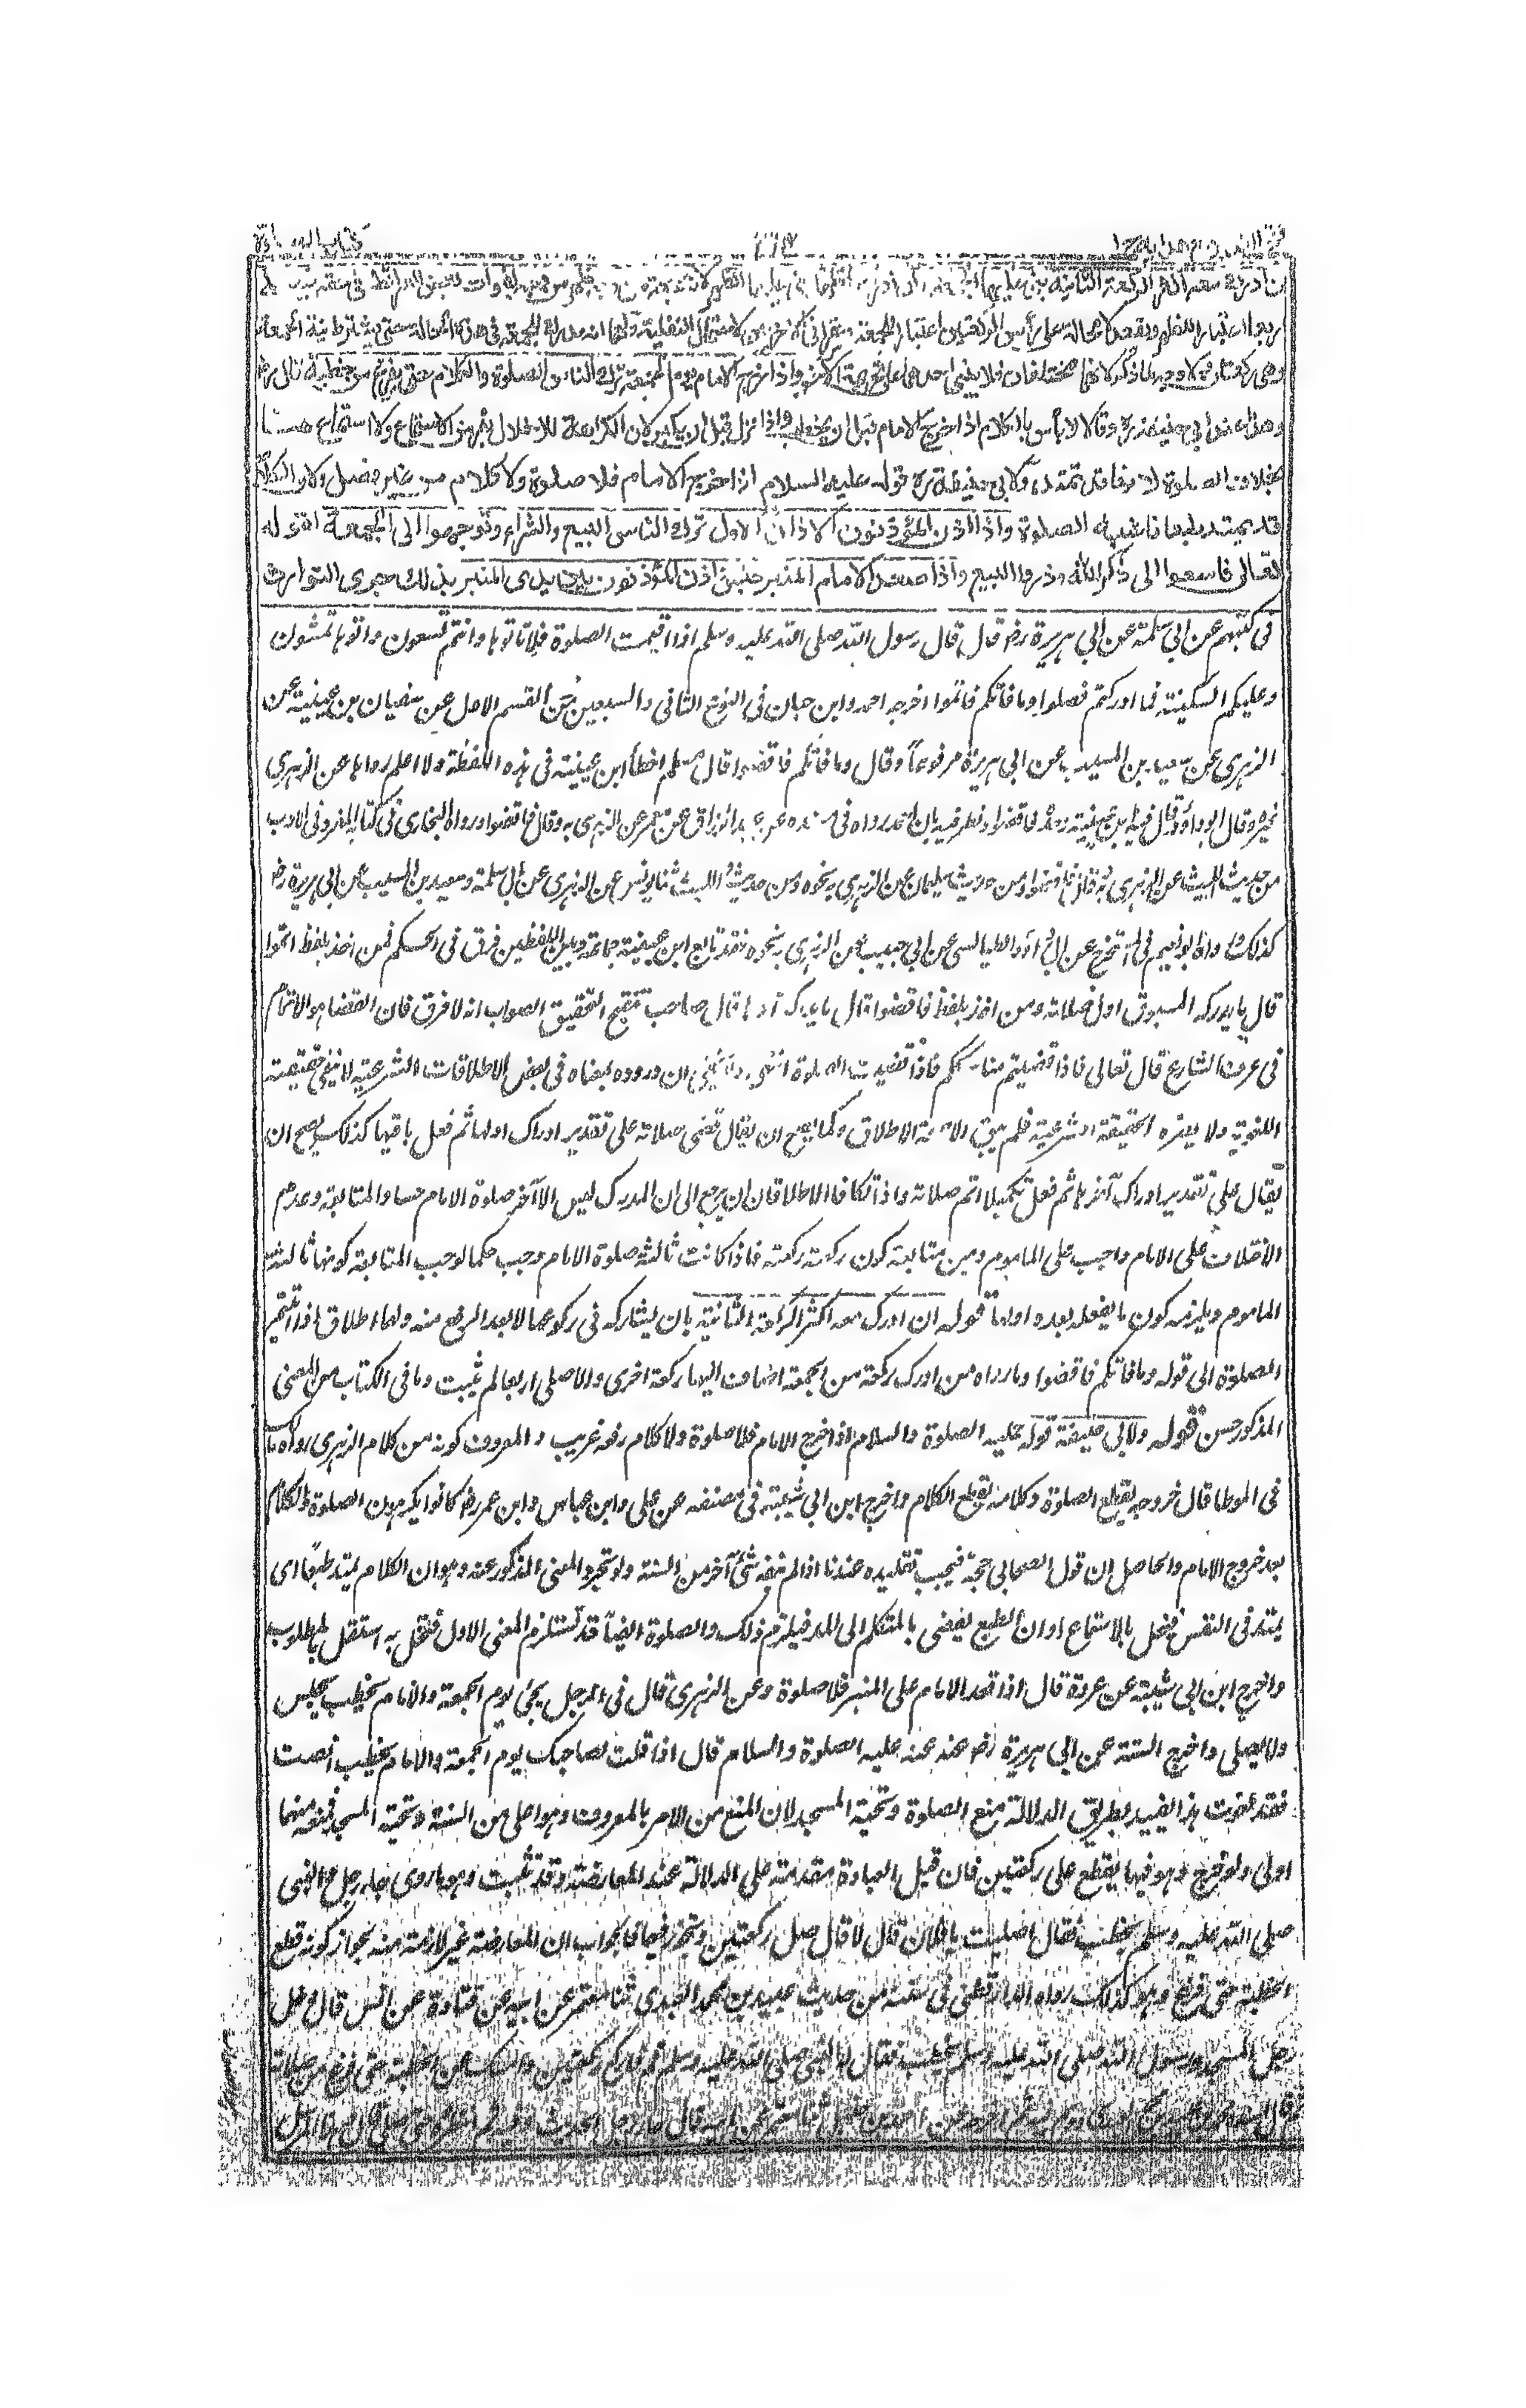 فتح القدير مع هداية ج ١ كتاب الصلوة
معه اكثر الركعة الثانية بنى عليها الجمعة وان ادرك اقلها بنى عليها الظهر لانه جمعة من وجه ظهر من وجه لفوات بعض الشرائط في حقه
اربعا اعتبارا للظهر ويقعد لا محالة على رأس الركعتين اعتبارا للجمعة ويقرأ في الاخريين لاحتمال النفلية ولهما انه مدرك للجمعة في هذه الحالة حتى يشترط نية الجمعة
وهي ركعتان ولا وجه لما ذكر لانهما مختلفان فلا يبنى احدهما على تحريمة الآخر واذا خرج الامام يوم الجمعة ترك الناس الصلوة والكلام حتى يفرغ من خطبته قال رض
وهذا عند ابي حنيفة رح وقالا لا بأس بالكلام اذا خرج الامام قبل ان يخطب واذا نزل قبل ان يكبر لان الكراهة للاخلال بفرض الاستماع ولا استماع هنا
بخلاف الصلوة لانها قد تمتد ولابي حنيفة رح قوله عليه السلام اذا خرج الامام فلا صلوة ولا كلام من غير فصل ولان الكلام
قد يمتد طبعا فاشبه الصلوة واذا اذن المؤذنون الاذان الاول ترك الناس البيع والشراء وتوجهوا الى الجمعة لقوله
تعالى فاسعوا الى ذكر الله وذروا البيع واذا صعد الامام المنبر جلس واذن المؤذنون بين يدي المنبر بذلك جرى التوارث
في كتبهم عن ابي سلمة عن ابي هريرة رض قال قال رسول الله صلى الله عليه وسلم اذا اقيمت الصلوة فلا تاتوها وانتم تسعون واتوها تمشون
وعليكم السكينة فما ادركتم فصلوا وما فاتكم فاتموا اخرجه احمد وابن حبان في النوع الثاني والسبعين من القسم الاول عن سفيان بن عيينة عن
الزهري عن سعيد بن المسيب عن ابي هريرة مرفوعا وقال وما فاتكم فاقضوا قال مسلم اخطأ ابن عيينة في هذه اللفظة ولا اعلم رواها عن الزهري
غيره وقال ابو داؤد قال فيه ابن عيينة وحده فاقضوا ونظر فيه بان احمد رواه في مسنده عن عبد الرزاق عن معمر عن الزهري به وقال فاقضوا ورواه البخاري في كتابه المفرد في الادب
من حديث الليث عن الزهري به وقال فاقضوا ومن حديث سليمان عن الزهري به نحوه ومن حديث الليث ثنا يونس عن الزهري عن ابي سلمة وسعيد بن المسيب عن ابي هريرة رض
كذلك ورواه ابو نعيم في المستخرج عن ابي داؤد الطيالسي عن ابن ابي ذئب عن الزهري به نحوه فقد تابع ابن عيينة جماعة وبين اللفظين فرق في الحكم فمن اخذ بلفظ اتموا
قال ما يدركه المسبوق اول صلاته ومن اخذ بلفظ فاقضوا قال ما يدركه آخرها قال صاحب تنقيح التحقيق الصواب انه لا فرق فان القضا هو الاتمام
في عرف الشارع قال تعالى فاذا قضيتم مناسككم فاذا قضيت الصلوة انتهى ولا يخفى ان وروده بمعناه في بعض الاطلاقات الشرعية لا ينفي حقيقته
اللغوية ولا يصيره الحقيقة الشرعية فلم يبق الا صحة الاطلاق وكما يصح ان يقال قضى صلاته على تقدير ادراك اولها ثم فعل باقيها كذلك يصح ان
يقال على تقدير ادراك آخرها ثم فعل تكميلا اتم صلاته واذا تكافا الاطلاقان يرجع الى ان المدرك ليس الا آخر صلوة الامام حسا والمتابعة وعدم
الاختلاف على الامام واجب على الماموم ومن متابعته كون ركعته ركعته فاذا كانت ثالثة صلوة الامام وجب حكما لوجب المتابعة كونها ثالثة
الماموم ويلزمه كون ما يفعله بعده اولها قوله ان ادرك معه اكثر الركعة الثانية بان يشاركه في ركوعها لا بعد الرفع منه ولهما اطلاق اذا اتيتم
الصلوة الى قوله وما فاتكم فاقضوا وما رواه من ادرك ركعة من الجمعة اضاف اليها ركعة اخرى والاصلى اربعا لم يثبت وما في الكتاب من المعنى
المذكور حسن قوله ولابي حنيفة قوله عليه الصلوة والسلام اذا خرج الامام فلا صلوة ولا كلام رفعه غريب والمعروف كونه من كلام الزهري رواه مالك
في الموطا قال خروجه يقطع الصلوة وكلامه يقطع الكلام واخرج ابن ابي شيبة في مصنفه عن علي وابن عباس وابن عمر رض كانوا يكرهون الصلوة والكلام
بعد خروج الامام والحاصل ان قول الصحابي حجة فيجب تقليده عندنا اذا لم ينفه شئ آخر من السنة ولو تجرد المعنى المذكور عنه وهو ان الكلام يمتد طبعا اى
يمتد في النفس فيخل بالاستماع او ان الطبع يفضي بالمتكلم الى المد فيلزم ذلك والصلوة ايضا قد تستلزم المعنى الاول فتخل به استقل بالمطلوب
واخرج ابن ابي شيبة عن عروة قال اذا قعد الامام على المنبر فلا صلوة وعن الزهري قال في الرجل يجئ يوم الجمعة والامام يخطب يجلس
ولا يصلى واخرج الستة عن ابي هريرة رض عنه عنه عليه الصلوة والسلام قال اذا قلت لصاحبك يوم الجمعة والامام يخطب انصت
فقد لغوت هذا يفيد بطريق الدلالة منع الصلوة وتحية المسجد لان المنع من الامر بالمعروف وهو اعلى من السنة وتحية المسجد فمنعه منهما
اولى ولو خرج وهو فيها يقطع على ركعتين فان قيل العبارة مقدمة على الدلالة عند المعارضة وقد ثبت وهو ما روى جاء رجل والنبي
صلى الله عليه وسلم يخطب فقال اصليت يا فلان قال لا قال صل ركعتين وتجوز فيهما فالجواب ان المعارضة غير لازمة منه لجواز كونه قطع
الخطبة حتى فرغ وهو كذلك رواه الدارقطني في سننه من حديث عبيد بن محمد العبدي ثنا معتمر عن ابيه عن قتادة عن انس قال دخل
رجل المسجد ورسول الله صلى الله عليه وسلم يخطب فقال له النبي صلى الله عليه وسلم قم فاركع ركعتين وامسك عن الخطبة حتى فرغ من صلاته